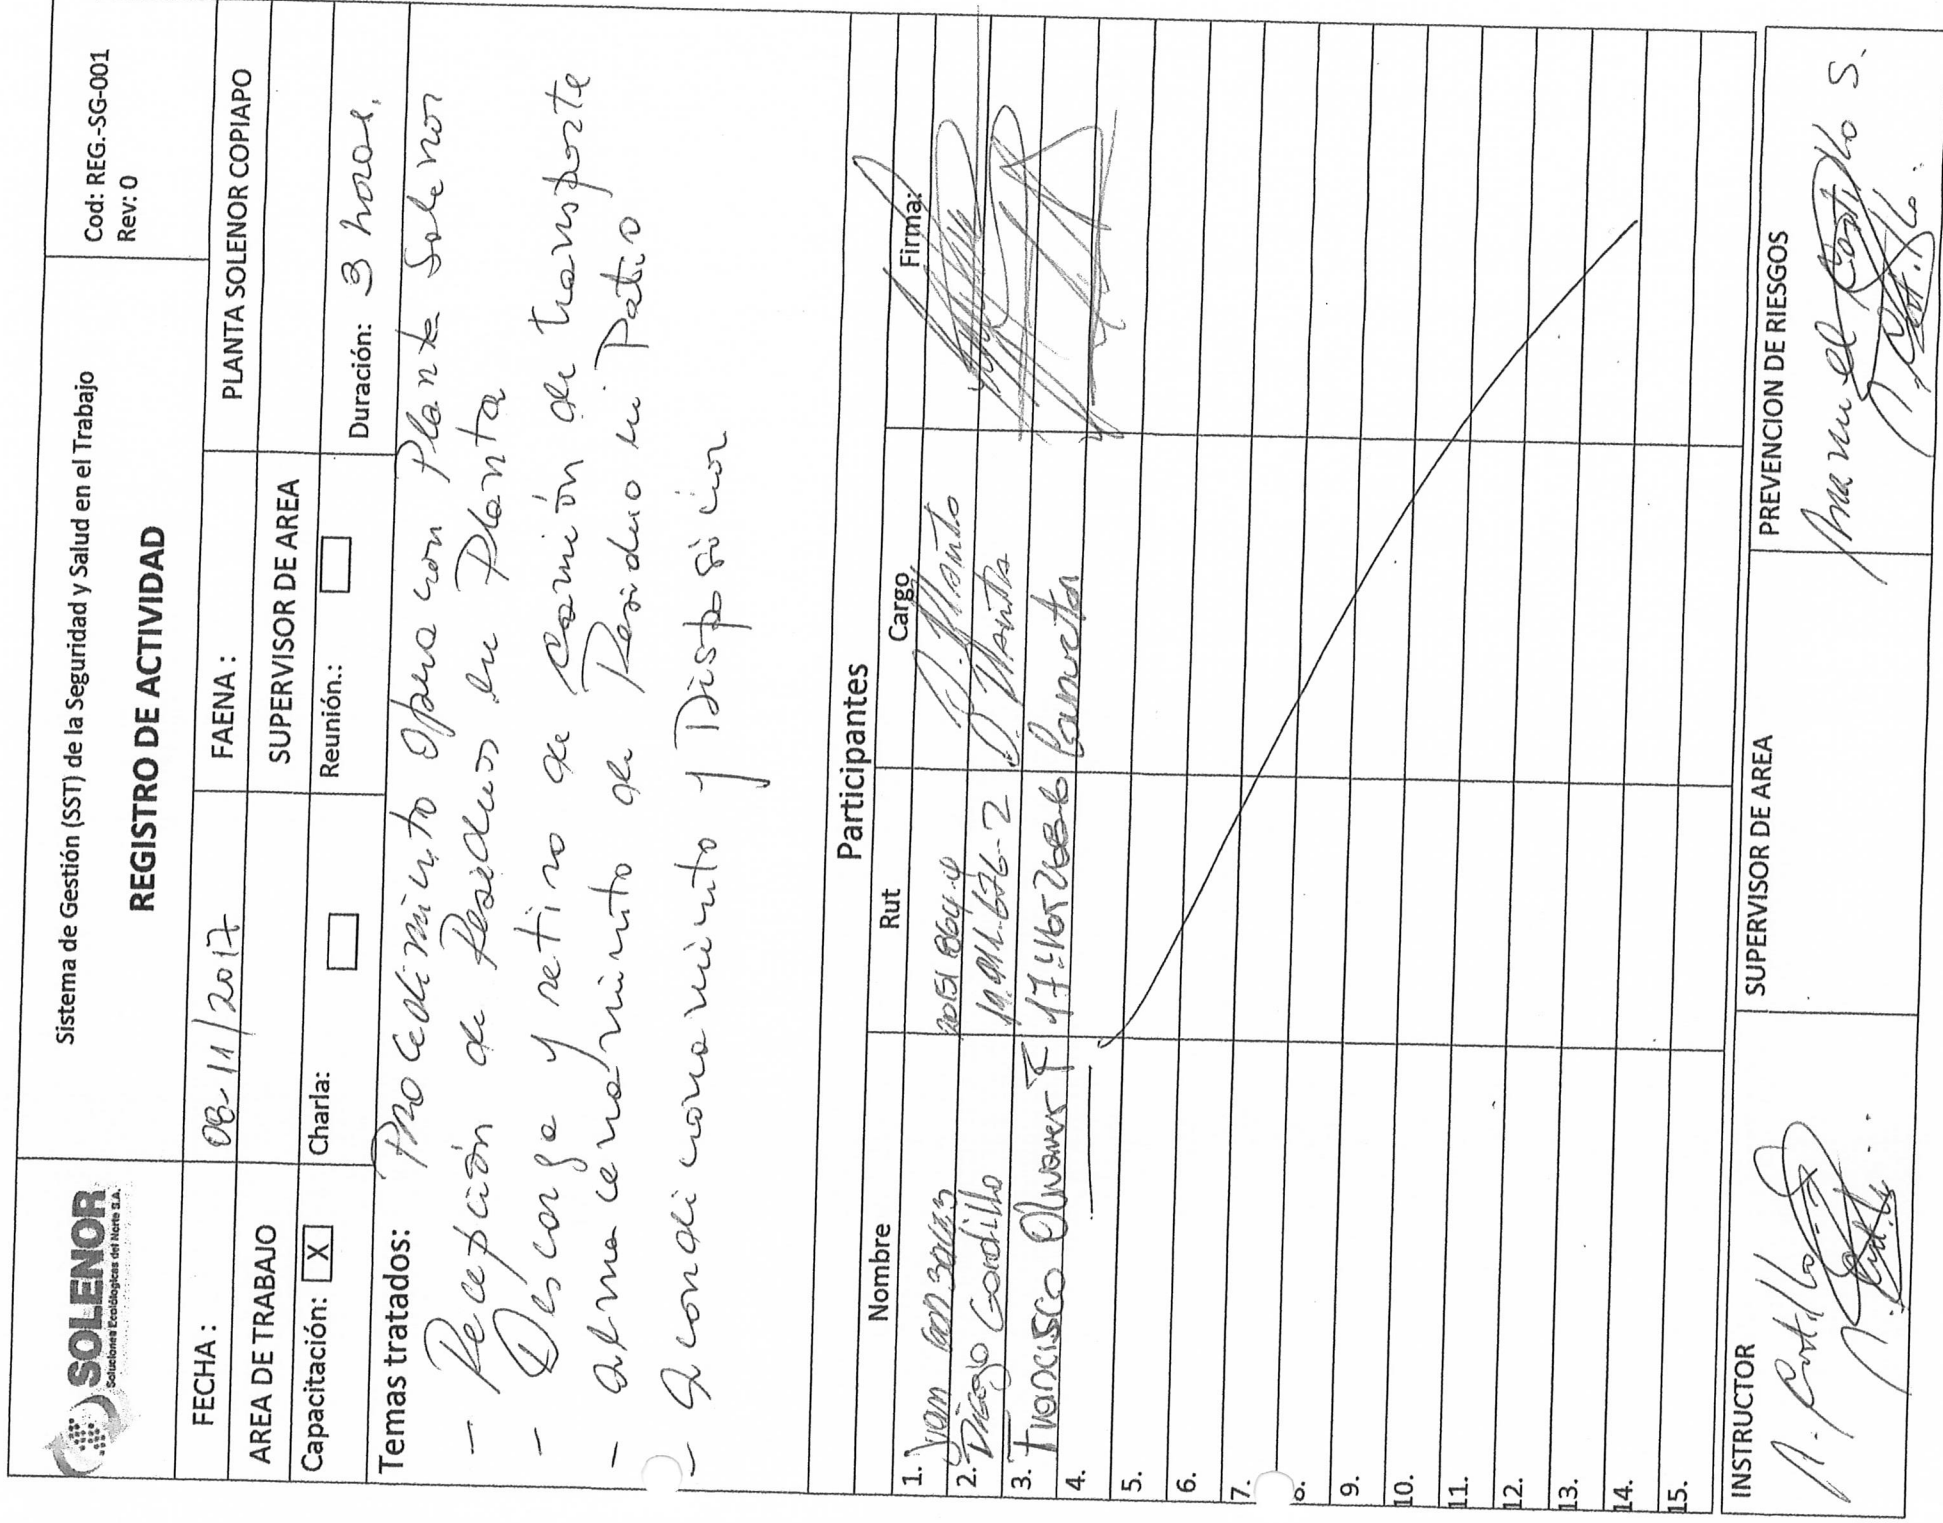 SOLENOR
Soluciones Ecológicas del Norte S.A.
Sistema de Gestión (SST) de la Seguridad y Salud en el Trabajo
REGISTRO DE ACTIVIDAD
Cod: REG.-SG-001
Rev: 0
FECHA : 08-11/2017 FAENA : PLANTA SOLENOR COPIAPO
AREA DE TRABAJO SUPERVISOR DE AREA
Capacitación: X Charla: Reunión.: Duración: 3 horas.
Temas tratados: Procedimiento Planta Solenor
- Recepción de Residuos en Planta
- Descarga y retiro de camión de transporte
- almacenamiento de Residuo en Patio
- acondicionamiento y Disposicion
Participantes
Nombre Rut Cargo Firma:
1. Juan
2. Diego Gordillo
3. Francisco Olivares F
4.
5.
6.
7.
8.
9.
10.
11.
12.
13.
14.
15.
INSTRUCTOR SUPERVISOR DE AREA PREVENCION DE RIESGOS
Manuel Castillo S.